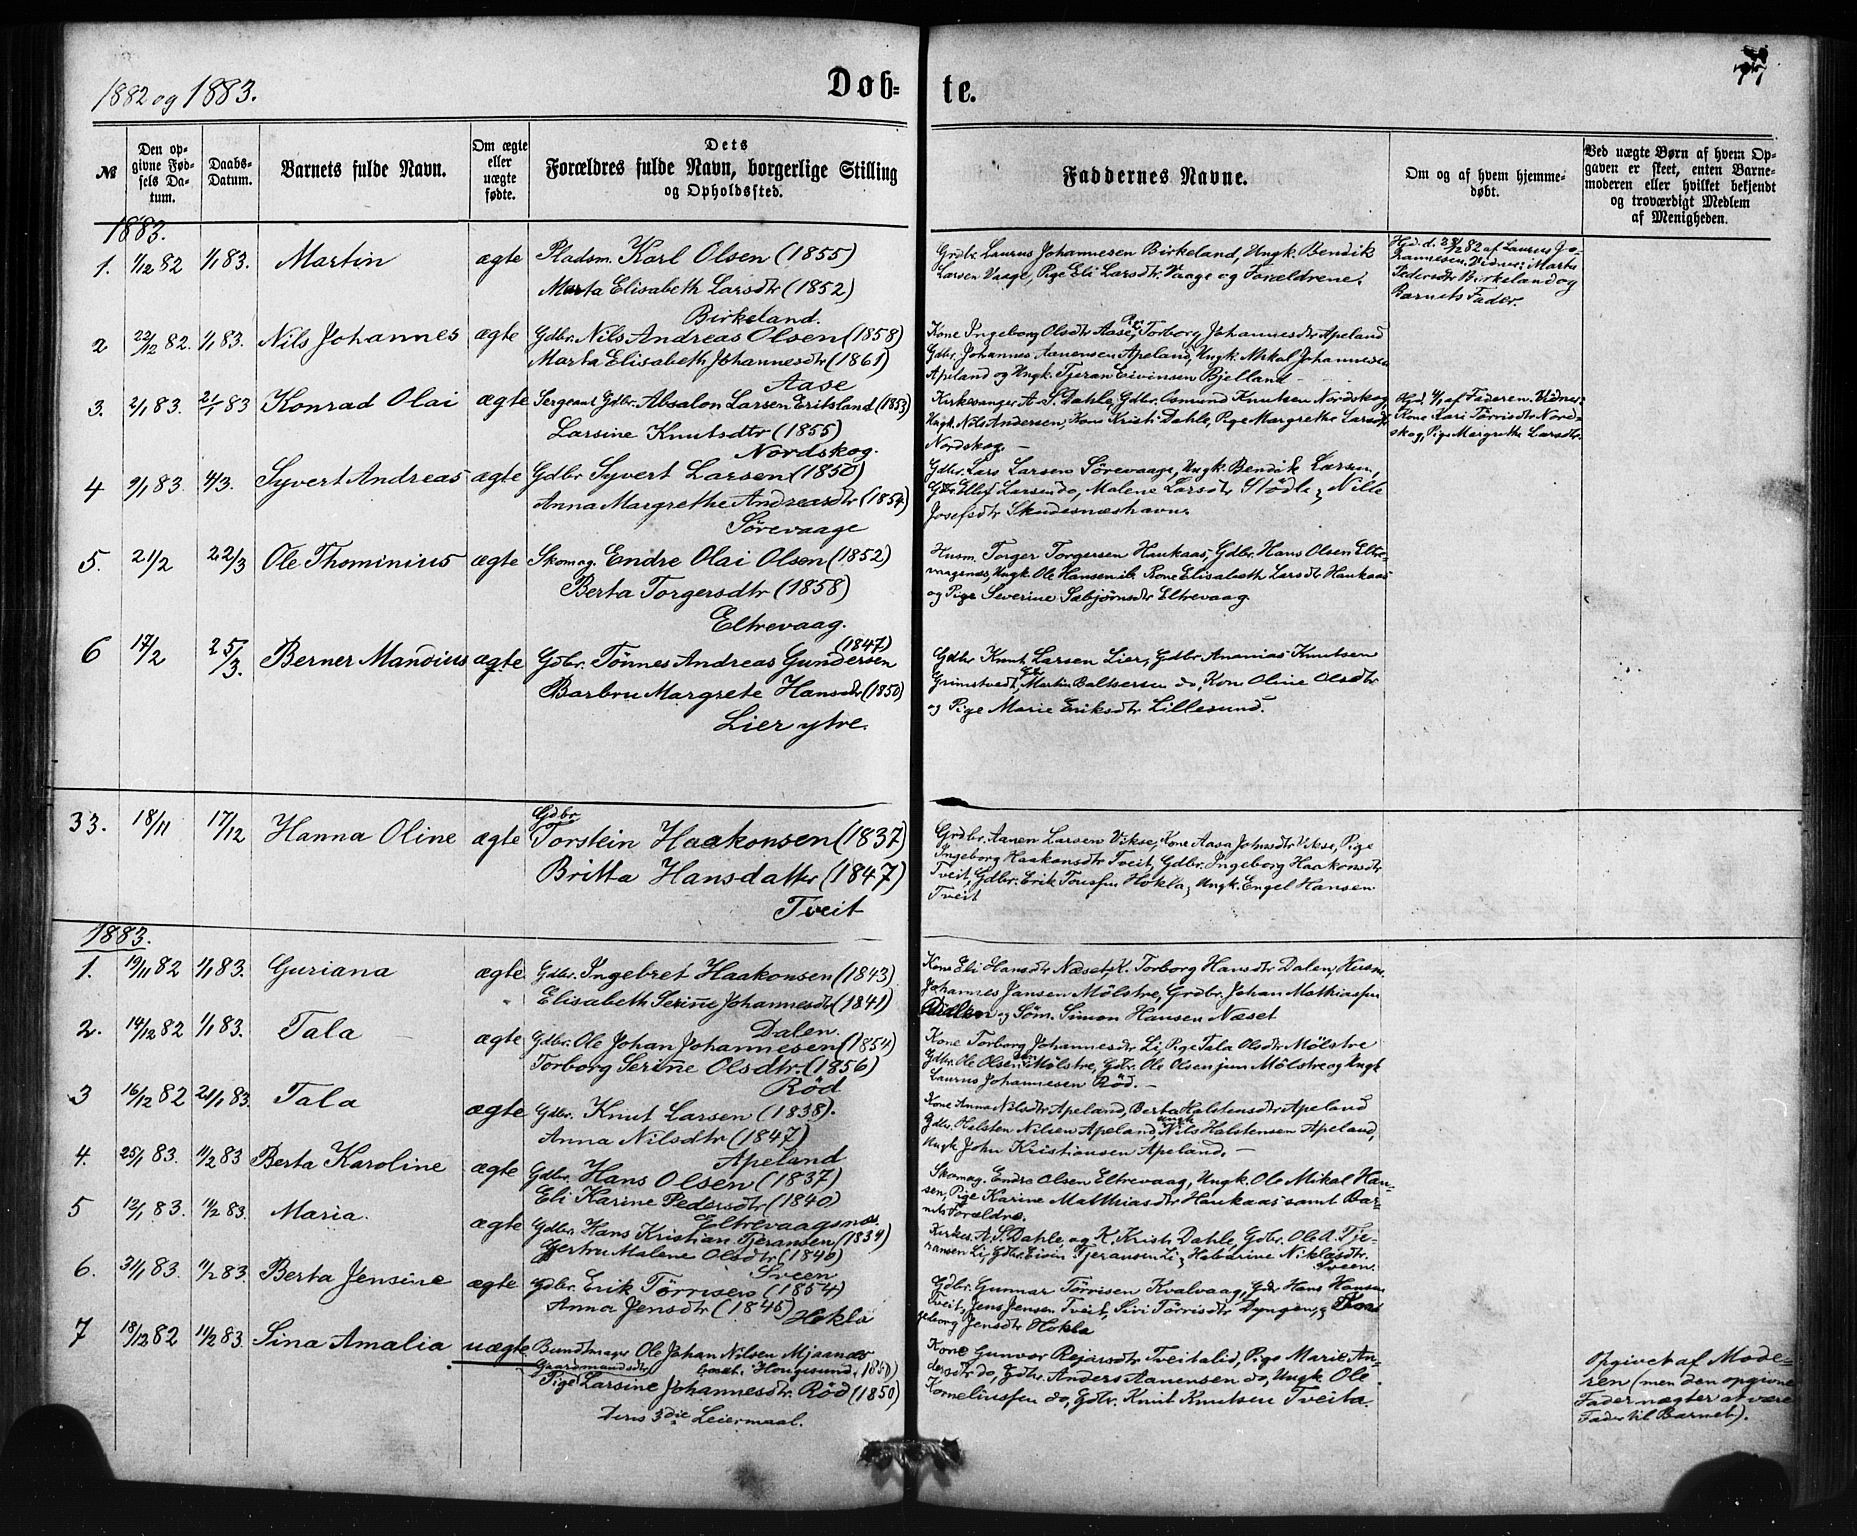 1882 og 1883.
Døb-
te.
77
№
Den op-
givne Fød-
sels Da-
tum.
Daabs-
Datum.
Barnets fulde Navn.
Om ægte
eller
uægte
fødte.
Dets
Forældres fulde Navn, borgerlige Stilling
og Opholdssted.
Faddernes Navne.
Om og af hvem hjemme-
døbt.
Ved uægte Børn af hvem Op-
gaven er skeet, enten Barne-
moderen eller hvilket bekjendt
og troværdigt Medlem
af Menigheden.
1883.
1. 1/12 82 1/1 83. Martin ægte Pladsm. Karl Olsen (1855)
Marta Elisabeth Larsdtr (1852)
Birkeland.
Grdbr. Laurus Johannesen Birkeland, Ungk. Bendik
Larsen Vaage, Pige Eli Larsdtr. Vaage og Forældrene.
Hjd. d. 82 af Laurus Jo-
hannesen. Vidner: Marta
Pedersdtr Birkeland og
Barnets Fader.
2 22/12 82. 1/1 83. Nils Johannes ægte Gdbr. Nils Andreas Olsen (1858)
Marta Elisabeth Johannesdtr (1861)
Aase
Kone Ingeborg Olsdtr Aase, Torborg Johannesdtr Apeland
Gdbr. Johannes Aanensen Apeland, Ungk. Mikal Johannesen
Apeland og Ungk. Tjeran Eivinsen Bjelland
3. 2/1 83. 21/1 83 Konrad Olai ægte Sergeant Gdbr. Absalon Larsen Eritsland (1853)
Larsine Knutsdtr (1855)
Nordskog.
Kirkesanger A. S. Dahle, Gdbr. Osmund Knutsen Nordskog
Ungk. Nils Andersen, Kone Kristi Dahle, Pige Margrethe Larsdtr
Nordskog. —
Hjd. af Faderen. Vidnes:
Kone Kari Tørrisdtr Nord-
skog, Pige Margrethe Larsdtr.
4 9/1 83. 4/3. Syvert Andreas ægte Gdbr Syvert Larsen (1850)
Anna Margrethe Andreasdtr (1854)
Sørevaage
Gdbr. Lars Larsen Sørevaage, Ungk. Bendik Larsen,
Gdbr. Ellef Larsen do, Malene Larsdtr Stødle, Nille
Josefsdtr Skudesnæshavn.
5. 21/2 22/3 Ole Thominius ægte Skomag. Endre Olai Olsen (1852)
Berta Torgersdtr (1858)
Eltrevaag.
Husm. Torger Torgersen Haukaas, Gdbr. Hans Olsen Eltre-
vaagsnæs, Ungk. Ole Hansen ib. Kone Elisabeth Larsdtr Haukaas
og Pige Severine Sæbjørnsdtr Eltrevaag.
6 17/2 25/3. Berner Mandius ægte Gdbr. Tønnes Andreas Gundersen
(1847)
Barbru Margrete Hansdtr (1850)
Lier ytre.
Gdbr Knut Larsen Lier, Gdbr Ananias Knutsen
Grimstvedt, Martin Baltsersen do, Kon Oline Olsdtr
og Pige Marie Eriksdtr Lillesund.
33. 18/11 17/12 Hanna Oline ægte Gdbr
Torstein Haakonsen (1837)
Britta Hansdatter (1847)
Tveit
Grdbr. Aanen Larsen Vikse, Kone Aasa Johnsdtr Vikse, Pige
Ingeborg Haakonsdtr Tveit, Gdbr. Ingeborg Haakonsdtr
Tveit, Gdbr. Erik Hokla, Ungk. Engel Hansen
Tveit
1883.
1. 19/11 82 1/1 83. Guriana ægte Gdbr. Ingebret Haakonsen (1843)
Elisabeth Serine Johannesdtr (1841)
Dalen.
Kone Eli Hansdtr Næset, K. Torborg Hansdtr Dalen, Husm
Johannes Jansen Mølstre, Grdbr. Johan Mathiassen
og Søm. Simon Hansen Næset
2. 14/12 82 1/1 83. Tala ægte Gdbr. Ole Johan Johannesen (1854)
Torborg Serine Olsdtr. (1856)
Rød
Kone Torborg Johannesdtr Li, Pige Tala Olsdtr Mølstre
Gdbr. Ole Olsen sen Mølstre, Gdbr. Ole Olsen jun Mølstre og Ungk
Laurus Johannesen Rød. —
3 16/12 82 21/1 83. Tala ægte Gdbr. Knut Larsen (1838).
Anna Nilsdtr (1847)
Apeland
Kone Anna Nilsdtr Apeland, Berta Halstensdtr Apeland
Gdbr. Halsten Nilsen Apeland, Ungk Nils Halstensen Apeland,
Ungk John Kristiansen Apeland. —
4. 25/1 83. 11/2 83 Berta Karoline ægte Gdbr. Hans Olsen (1837)
Eli Karine Pedersdtr (1840)
Eltrevaagsnæs
Skomag. Endre Olsen Eltrevaag, Ungk. Ole Mikal Han-
sen, Pige Karine Matthiasdtr Haukaas samt Bar-
nets Forældre.
5 12/1 83. 11/2 83. Maria. ægte Gdbr. Hans Kristian Tjeransen (1834)
Gjertru Malene Olsdtr (1840)
Sveen
Kirkes. A. S. Dahle og K. Kristi Dahle, Gdbr. Ole A. Tje-
ransen Li, Gdbr. Eivin Tjeransen Li, Habarine Niklasdtr.
Sveen.
6. 31/1 83. 11/2 83. Berta Jensine ægte Gdbr. Erik Tørrisen (1854)
Anna Jensdtr (1845)
Hokla
Gdbr. Gunnar Tørrisen Kvalvaag, Gdbr Hans Hansen
Tveit, Jens Jensen Tveit, Sivi Tørrisdtr Dyngen,
geborg Jensdtr Hokla
7 18/12 82 11/2 83. Sina Amalia uægte. Bundtmager Ole Johan Nilsen Mjaanæs
Gaardmandsdtr Haugesund (1850)
Pige Larsine Johannesdtr. Rød (1850)
Deres 3die Leiermaal.
Kone Gunvor Reiarsdtr Tveitalid, Pige Marie An-
dersdtr do, Gdbr. Anders Aanensen do, Ungk. Ole
Korneliussen do, Gdbr. Knut Knutsen Tveita.
Opgivet af Mode-
ren (men den opgivne
Fader nægter at være
Fader til Barnet).